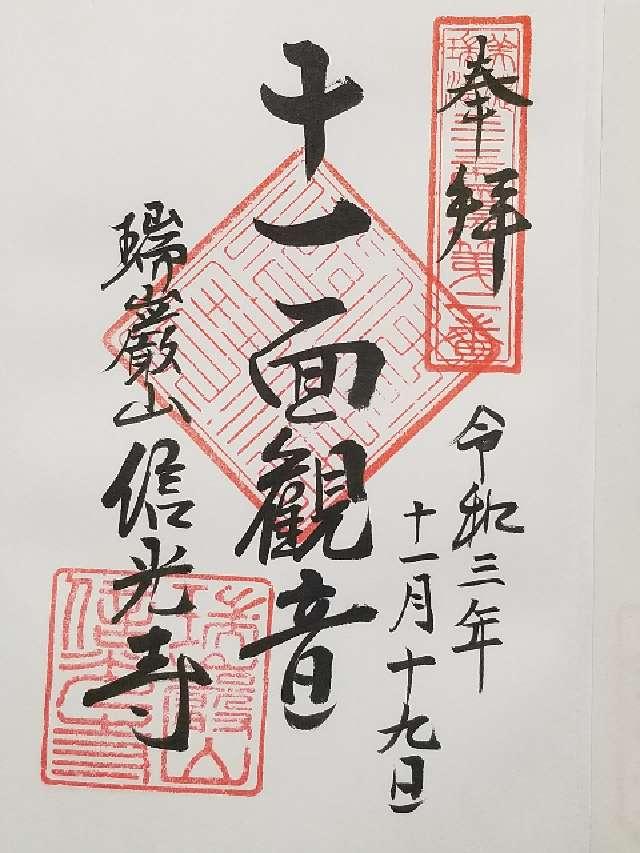 奉拝
令和三年
十一月十九日
十一面観音
瑞巖山信光寺